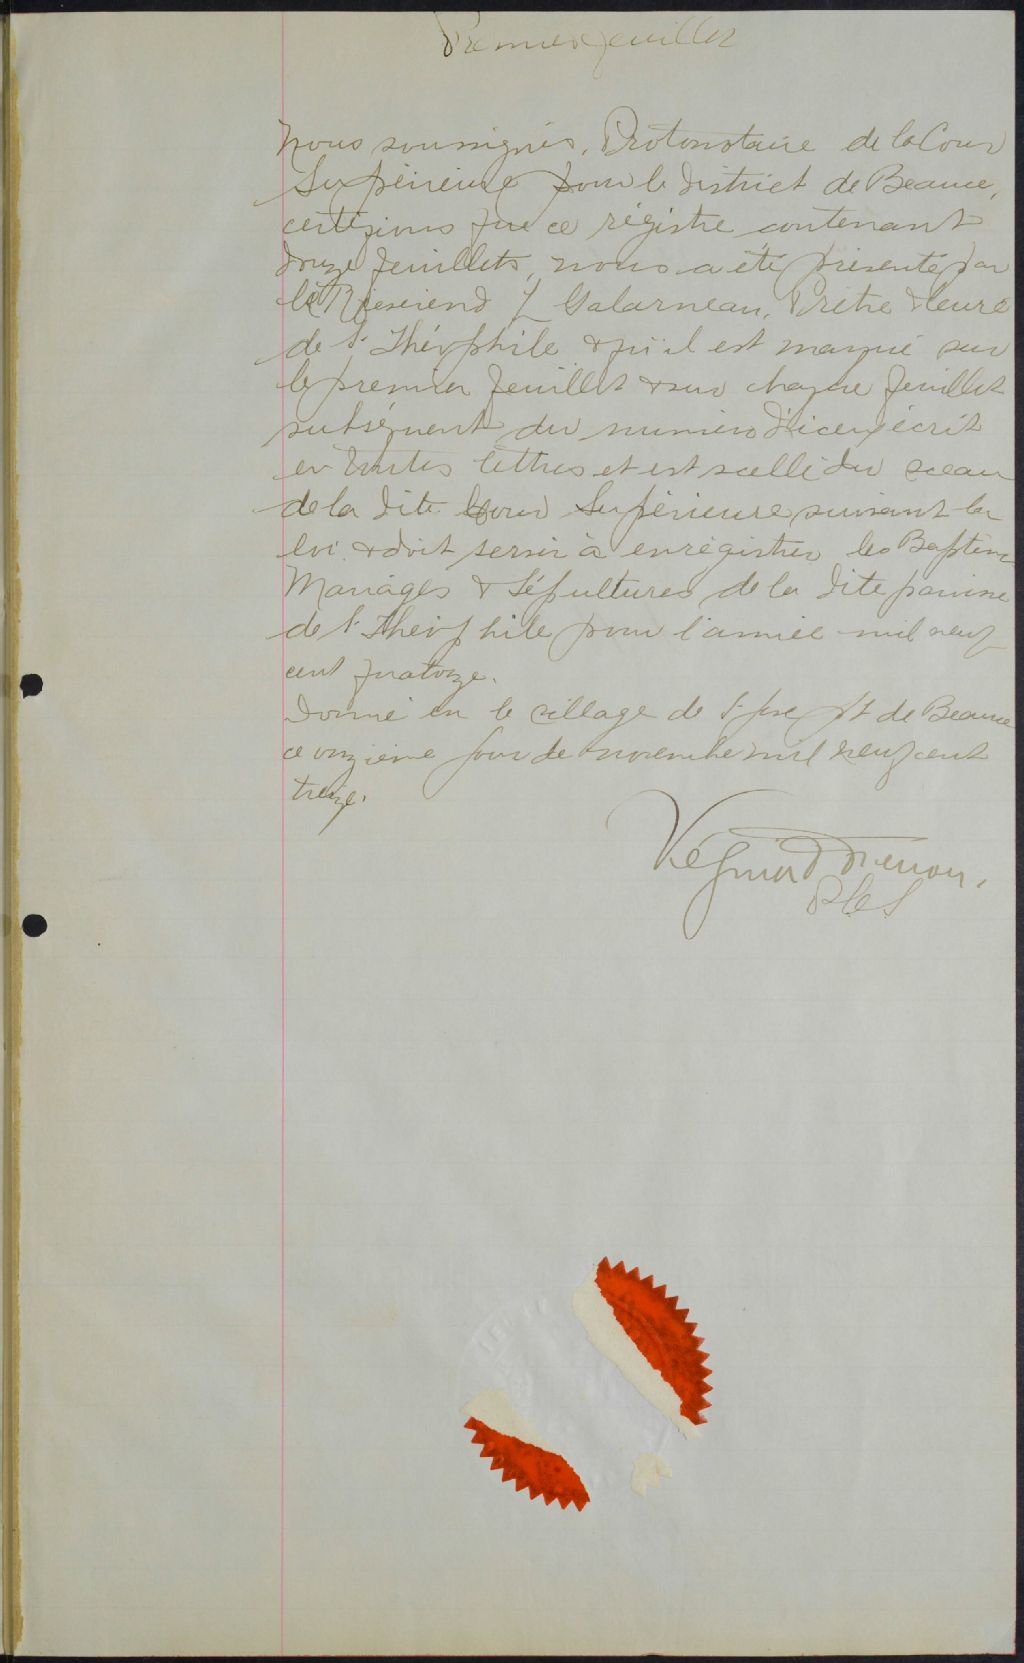 Premier feuillet
Nous soussignés, Protonotaire de la Cour
Supérieure pour le district de Beauce,
certifions que ce régistre contenant
douze feuillets, nous a été présenté par
le Révérend J Galarneau, Prêtre & Curé
de St Théophile & qu'il est marqué sur
le premier feuillet & sur chaque feuillet
subséquent du numéro d'iceux écrit
en toutes lettres et est scellé du sceau
de la dite Cour Supérieure suivant la
loi & doit servir à enrégistrer les Baptêmes
Mariages & Sépultures de la dite paroisse
de St Théophile pour l'année mil neuf
cent quatorze.
Donné en le village de St Joseph de Beauce
ce onzième jour de novembre mil neuf cent
treize.
PCS